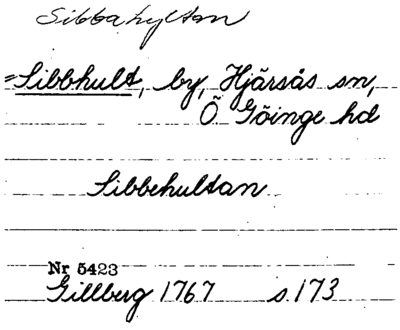 Sibbahyltan
=Sibbhult, by, Hjärsås sn,
Ö Göinge hd
Sibbehultan
Nr 5423
Gillberg 1767 s. 173